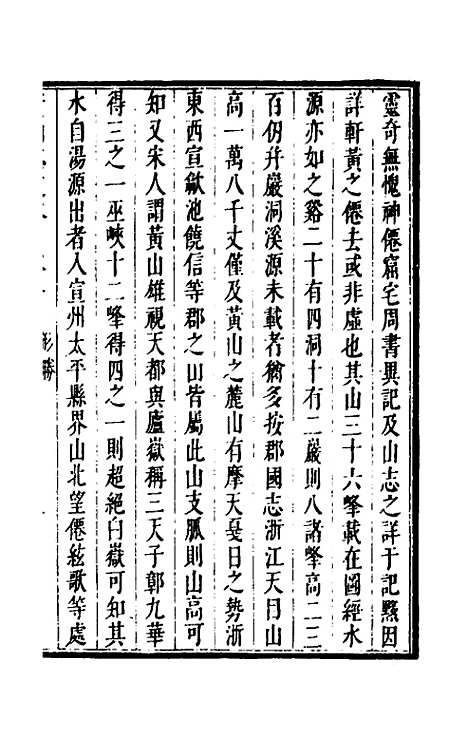 靈奇無愧神僊窟宅周書異記及山志之詳于記黟因
詳軒黃之僊去或非虛也其山三十六峰載在圖經水
源亦如之谿二十有四洞十有二巖則八諸峰高二三
百仞并巖洞溪源未載者猶多按郡國志浙江天目山
高一萬八千丈僅及黃山之麓山有摩天戞日之勢浙
東西宣歙池饒信等郡之山皆屬此山支脈則山高可
知又宋人謂黃山雄視天都與廬嶽稱三天子鄣九華
得三之一巫峽十二峰得四之一則超絕白嶽可知其
水自湯源出者入宣州太平縣界山北望僊絃歌等處
形勝